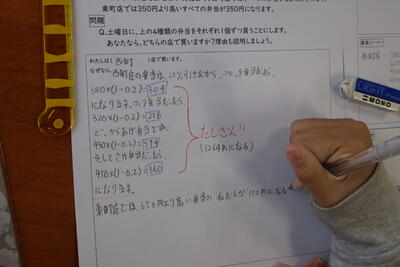 東町店では350円より高いすべての弁当が350円になります。
問題
Q.土曜日に、上の4種類の弁当をそれぞれ1個ずつ買うことにします。
あなたなら、どちらの店で買いますか?理由も説明しましょう。
わたしは( 西町 )店で買います。
なぜなら、西町店の弁当は、20%引きだから、
380×(1-0.2)=304
になります。のり弁当だったら
320×(1-0.2)=256
で、からあげ弁当では、
430×(1-0.2)=344
そして
450×(1-0.2)=360
になります。
たしざん!!
(1264円になる)
東町店では、350円より高い弁当の
LIGHT
MONO